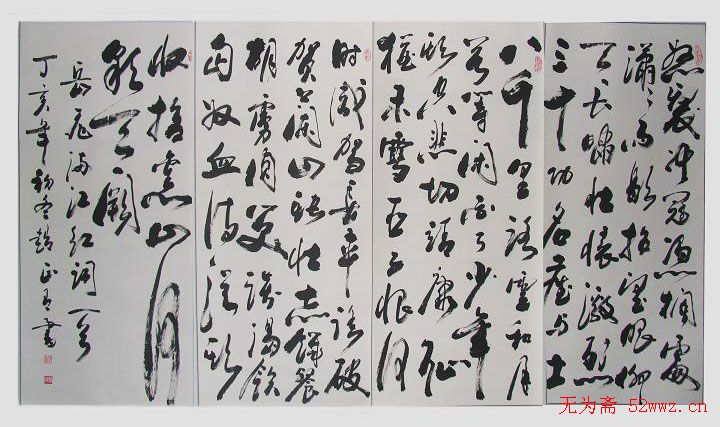 怒发冲冠凭栏处
潇潇雨歇抬望眼仰
天长啸壮怀激烈
三十功名尘与土
八千里路云和月
莫等闲白了少年
头空悲切靖康耻
犹未雪臣子恨何
时灭驾长车踏破
贺兰山缺壮志饥餐
胡虏肉笑谈渴饮
匈奴血待从头
收拾旧山河
朝天阙
岳飞满江红词一首
丁亥年初冬赵正书
无为斋 52wwz.cn